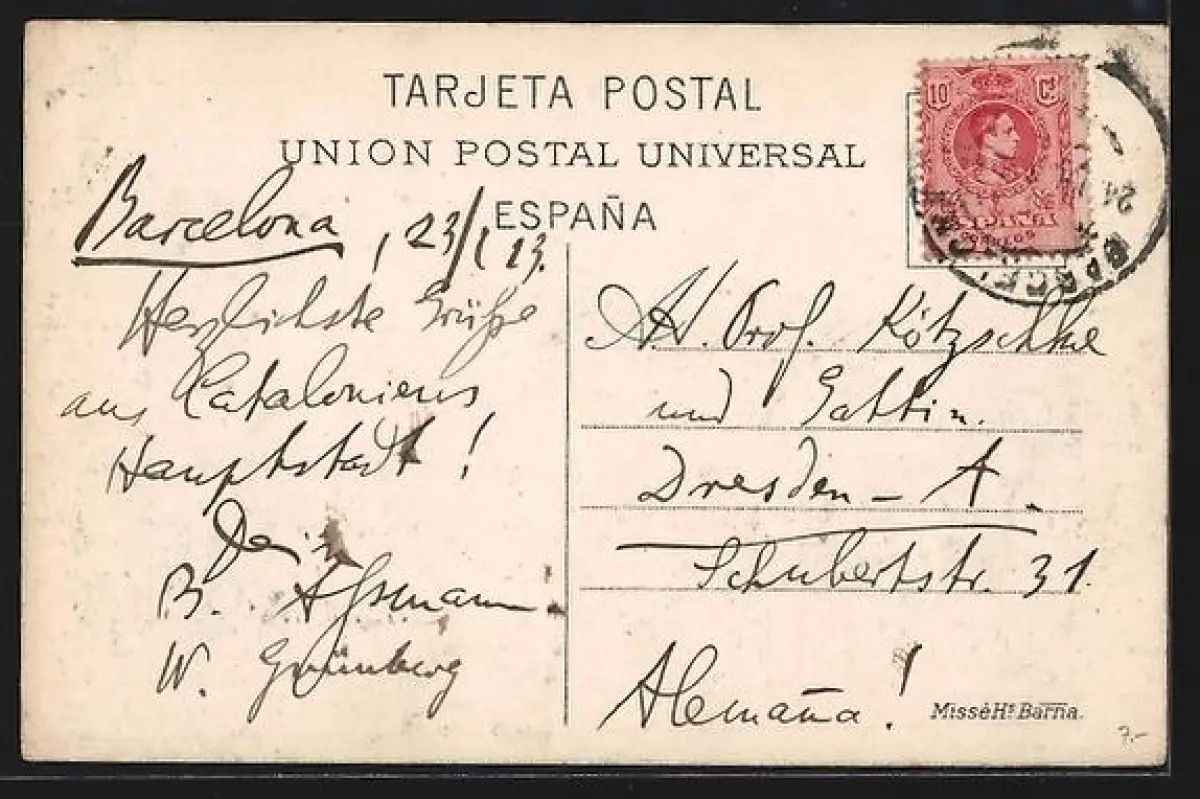 TARJETA POSTAL
UNION POSTAL UNIVERSAL
ESPAÑA
10 Cs
ESPAÑA
CORREOS
24
BARCEL
Barcelona, 23/1 13.
Herzlichste Grüße
aus Cataloniens
Hauptstadt!
Dein
B. Assmann
W. Grünberg
Prof. Kötzschke
und Gattin.
Dresden - A.
Schubertstr. 31.
Alemaña!
Missé Hs Barna.
7.-